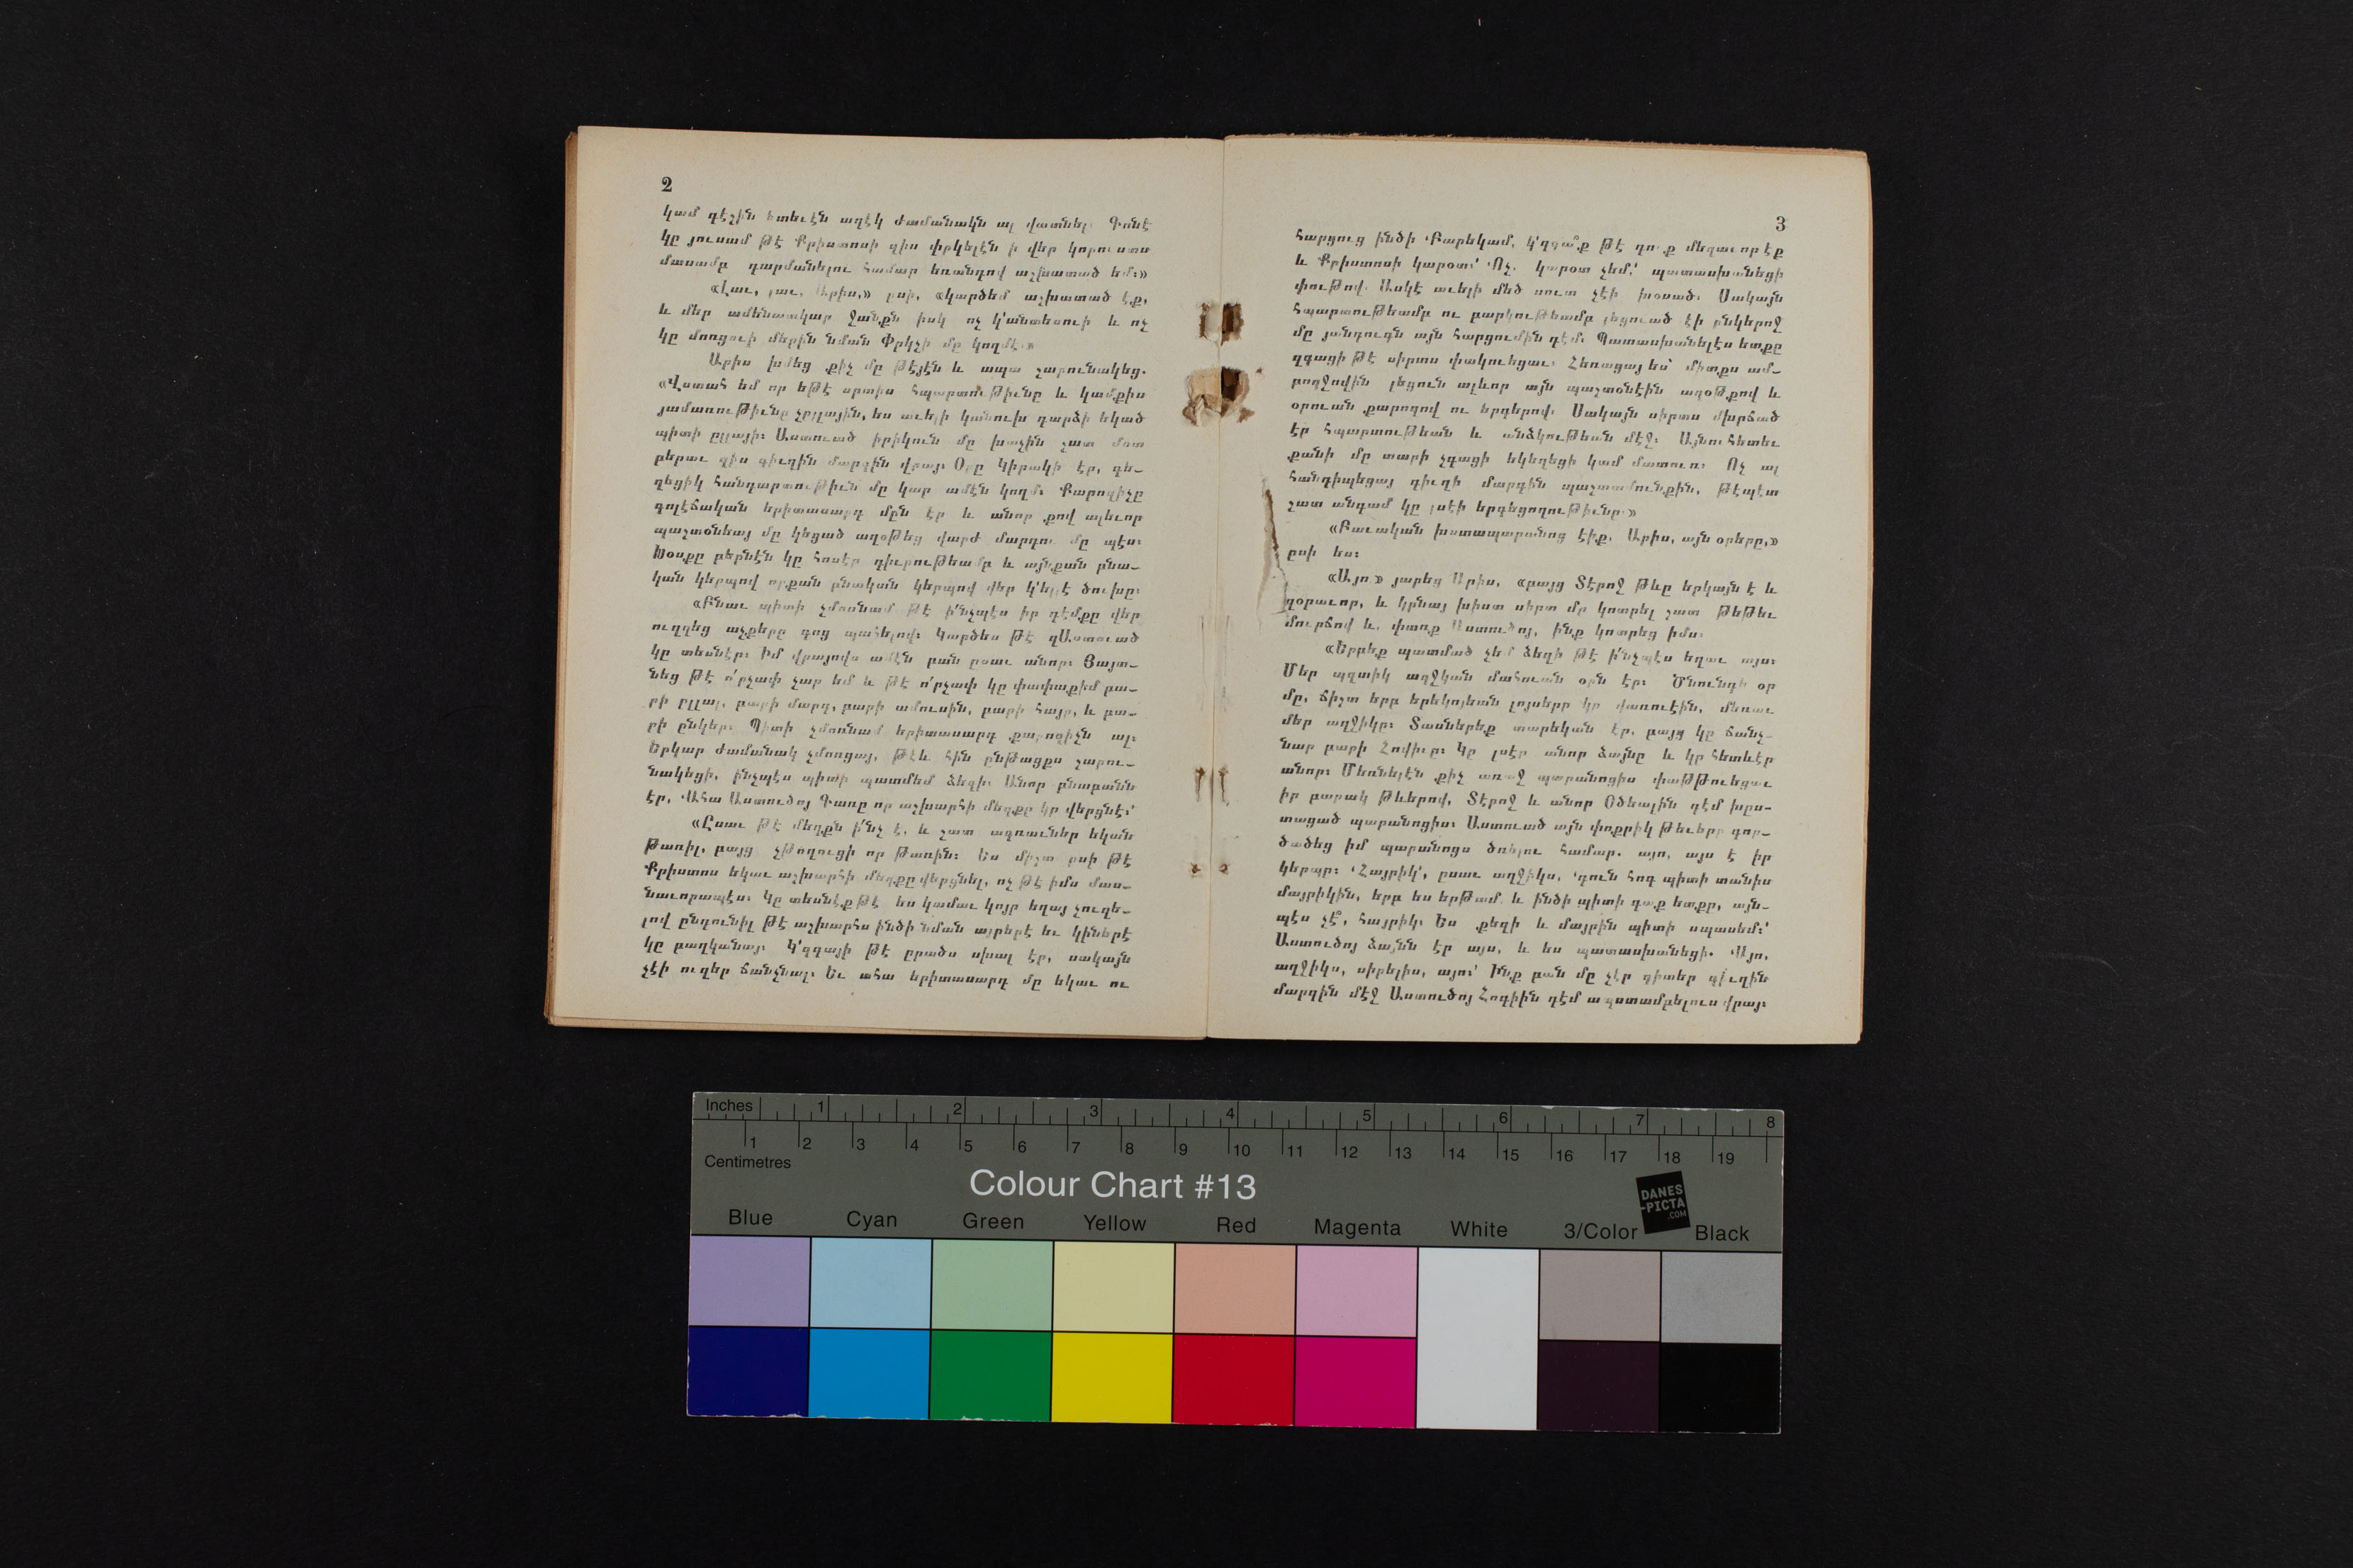 2
կամ գէշին ետեւէն աղէկ ժամանակն ալ վատնել։ Գոնէ
կը յուսամ թէ Քրիստոսի զիս փրկելէն ի վեր կորուստս
մասամբ դարմանելու համար եռանդով աշխատած եմ։»
«Լաւ, լաւ, Արիս,» ըսի, «կարծեմ աշխատած էք,
և մեր ամենատկար ջանքն իսկ ոչ կ՚անտեսուի և ոչ
կը մոռցուի մերին նման Փրկչի մը կողմէ։»
Արիս խմեց քիչ մը թէյէն և ապա շարունակեց.
«Վստահ եմ որ եթէ սրտիս հպարտութիւնը և կամքիս
յամառութիւնը չըլլային, ես աւելի կանուխ դարձի եկած
պիտի ըլլայի։ Աստուած իրիկուն մը խաչին շատ մօտ
բերաւ զիս գիւղին մարգին վրայ։ Օրը կիրակի էր, գե–
ղեցիկ հանդարտութիւն մը կար ամէն կողմ։ Քարոզիչը
գոլէճական երիտասարդ մըն էր և անոր քով ալեւոր
պաշտօնեայ մը կեցած աղօթեց վարժ մարդու մը պէս։
Խօսքը բերնէն կը հոսէր դիւրութեամբ և այնքան բնա–
կան կերպով որքան բնական կերպով վեր կ՚ելլէ ծուխը։
«Բնաւ պիտի չմոռնամ թէ ի՛նչպէս իր դէմքը վեր
ուղղեց աչքերը գոց պահելով։ Կարծես թէ զԱստուած
կը տեսնէր։ Իմ վրայովս ամէն բան ըսաւ անոր։ Յայտ–
նեց թէ ո՛րչափ չար եմ և թէ ո՛րչափ կը փափաքիմ բա–
րի ըլլալ, բարի մարդ, բարի ամուսին, բարի հայր, և բա–
րի ընկեր։ Պիտի չմոռնամ երիտասարդ քարոզիչն ալ։
Երկար ժամանակ չմոռցայ, թէև հին ընթացքս շարու–
նակեցի, ինչպէս պիտի պատմեմ ձեզի։ Անոր բնաբանն
էր, ‘Ահա Աստուծոյ Գառը որ աշխարհի մեղքը կը վերցնէ։’
«Ըսաւ թէ մեղքն ի՛նչ է, և շատ ագռաւներ եկան
թառիլ, բայց չթողուցի որ թառին։ Ես միշտ ըսի թէ
Քրիստոս եկաւ աշխարհի մեղքը վերցնել, ոչ թէ իմս մաս–
նաւորապէս։ Կը տեսնէք թէ ես կամաւ կոյր եղայ չուզե–
լով ընդունիլ թէ աշխարհս ինծի նման այրերէ եւ կիներէ
կը բաղկանայ։ Կ՚զգայի թէ ըրածս սխալ էր, սակայն
չէի ուզեր ճանչնալ։ Եւ ահա երիտասարդ մը եկաւ ու
3
հարցուց ինծի ‘Բարեկամ, կ՚զգա՞ք թէ դուք մեղաւոր էք
և Քրիստոսի կարօտ։’ ‘Ոչ, կարօտ չեմ,’ պատասխանեցի
փութով։ Ասկէ աւելի մեծ սուտ չէի խօսած։ Սակայն
հպարտութեամբ ու բարկութեամբ լեցուած էի ընկերոջ
մը յանդուգն այն հարցումին դէմ։ Պատասխանելէս ետքը
զգացի թէ սիրտս փակուեցաւ։ Հեռացայ ես՝ միտքս ամ–
բողջովին լեցուն ալեւոր այն պաշտօնէին աղօթքով և
օրուան քարոզով ու երգերով։ Սակայն սիրտս մխրճած
էր հպարտութեան և անձկութեան մէջ։ Այնուհետեւ
քանի մը տարի չգացի եկեղեցի կամ մատուռ։ Ոչ ալ
հանդիպեցայ գիւղի մարգին պաշտամունքին, թէպէտ
շատ անգամ կը լսէի երգեցողութիւնը։»
«Բաւական խստապարանոց էիք, Արիս, այն օրերը,»
ըսի ես։
«Այո» յարեց Արիս, «բայց Տէրոջ թևը երկայն է և
զօրաւոր, և կրնայ խիստ սիրտ մը կոտրել շատ թեթեւ
մուրճով և, փառք Աստուծոյ, ինք կոտրեց իմս։
«Երբեք պատմած չեմ ձեզի թէ ի՛նչպէս եղաւ այս։
Մեր պզտիկ աղջկան մահուան օրն էր։ Ծնունդի օր
մը, ճիշտ երբ երեկոյեան լոյսերը կը վառուէին, մեռաւ
մեր աղջիկը։ Տասներեք տարեկան էր, բայց կը ճանչ–
նար բարի Հովիւը։ Կը լսէր անոր ձայնը և կը հետևէր
անոր։ Մեռնելէն քիչ առաջ պարանոցիս փաթթուեցաւ
իր բարակ թևերով, Տէրոջ և անոր Օծեալին դէմ խըս–
տացած պարանոցիս։ Աստուած այն փոքրիկ թեւերը գոր–
ծածեց իմ պարանոցս ծռելու համար. այո, այս է իր
կերպը։ ‘Հայրիկ’, ըսաւ աղջիկս, ‘դուն հոգ պիտի տանիս
մայրիկին, երբ ես երթամ և ինծի պիտի գաք ետքը, այն–
պէս չէ՞, հայրիկ։ Ես քեզի և մայրին պիտի սպասեմ։’
Աստուծոյ ձայնն էր այս, և ես պատասխանեցի. ‘Այո,
աղջիկս, սիրելիս, այո։’ Ինք բան մը չէր գիտեր գիւղին
մարգին մէջ Աստուծոյ Հոգիին դէմ ապստամբելուս վրայ։
Inches 1 2 3 4 5 6 7 8
1 2 3 4 5 6 7 8 9 10 11 12 13 14 15 16 17 18 19
Centimetres
Colour Chart #13
DANES
-PICTA
.COM
Blue Cyan Green Yellow Red Magenta White 3/Color Black